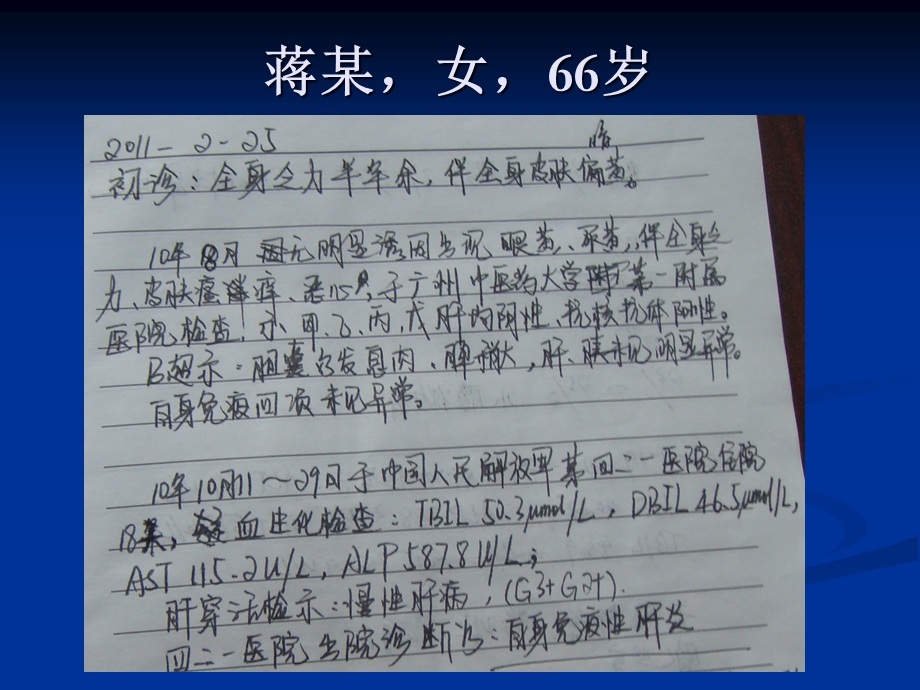 蒋某，女，66岁
2011-2-25
初诊：全身乏力半年余，伴全身皮肤偏黄。
暗
10年8月 无明显诱因出现 眼黄、尿黄，伴全身乏
力、皮肤瘙痒、于广州中医药大学第一附属
医院检查，示甲、乙、丙、戊肝均阴性、抗核抗体阴性。
B超示：胆囊多发息肉、脾稍大，肝、胰未见明显异常。
自身免疫四项未见异常。
10年10月11～29日于中国人民解放军第四二一医院住院
18天，血生化检查：TBIL 50.3μmol/L，DBIL 46.5μmol/L，
AST 115.2U/L，ALP 587.8U/L；
肝穿活检示：慢性肝病，(G3+G2+).
四二一医院出院诊断为：自身免疫性肝炎